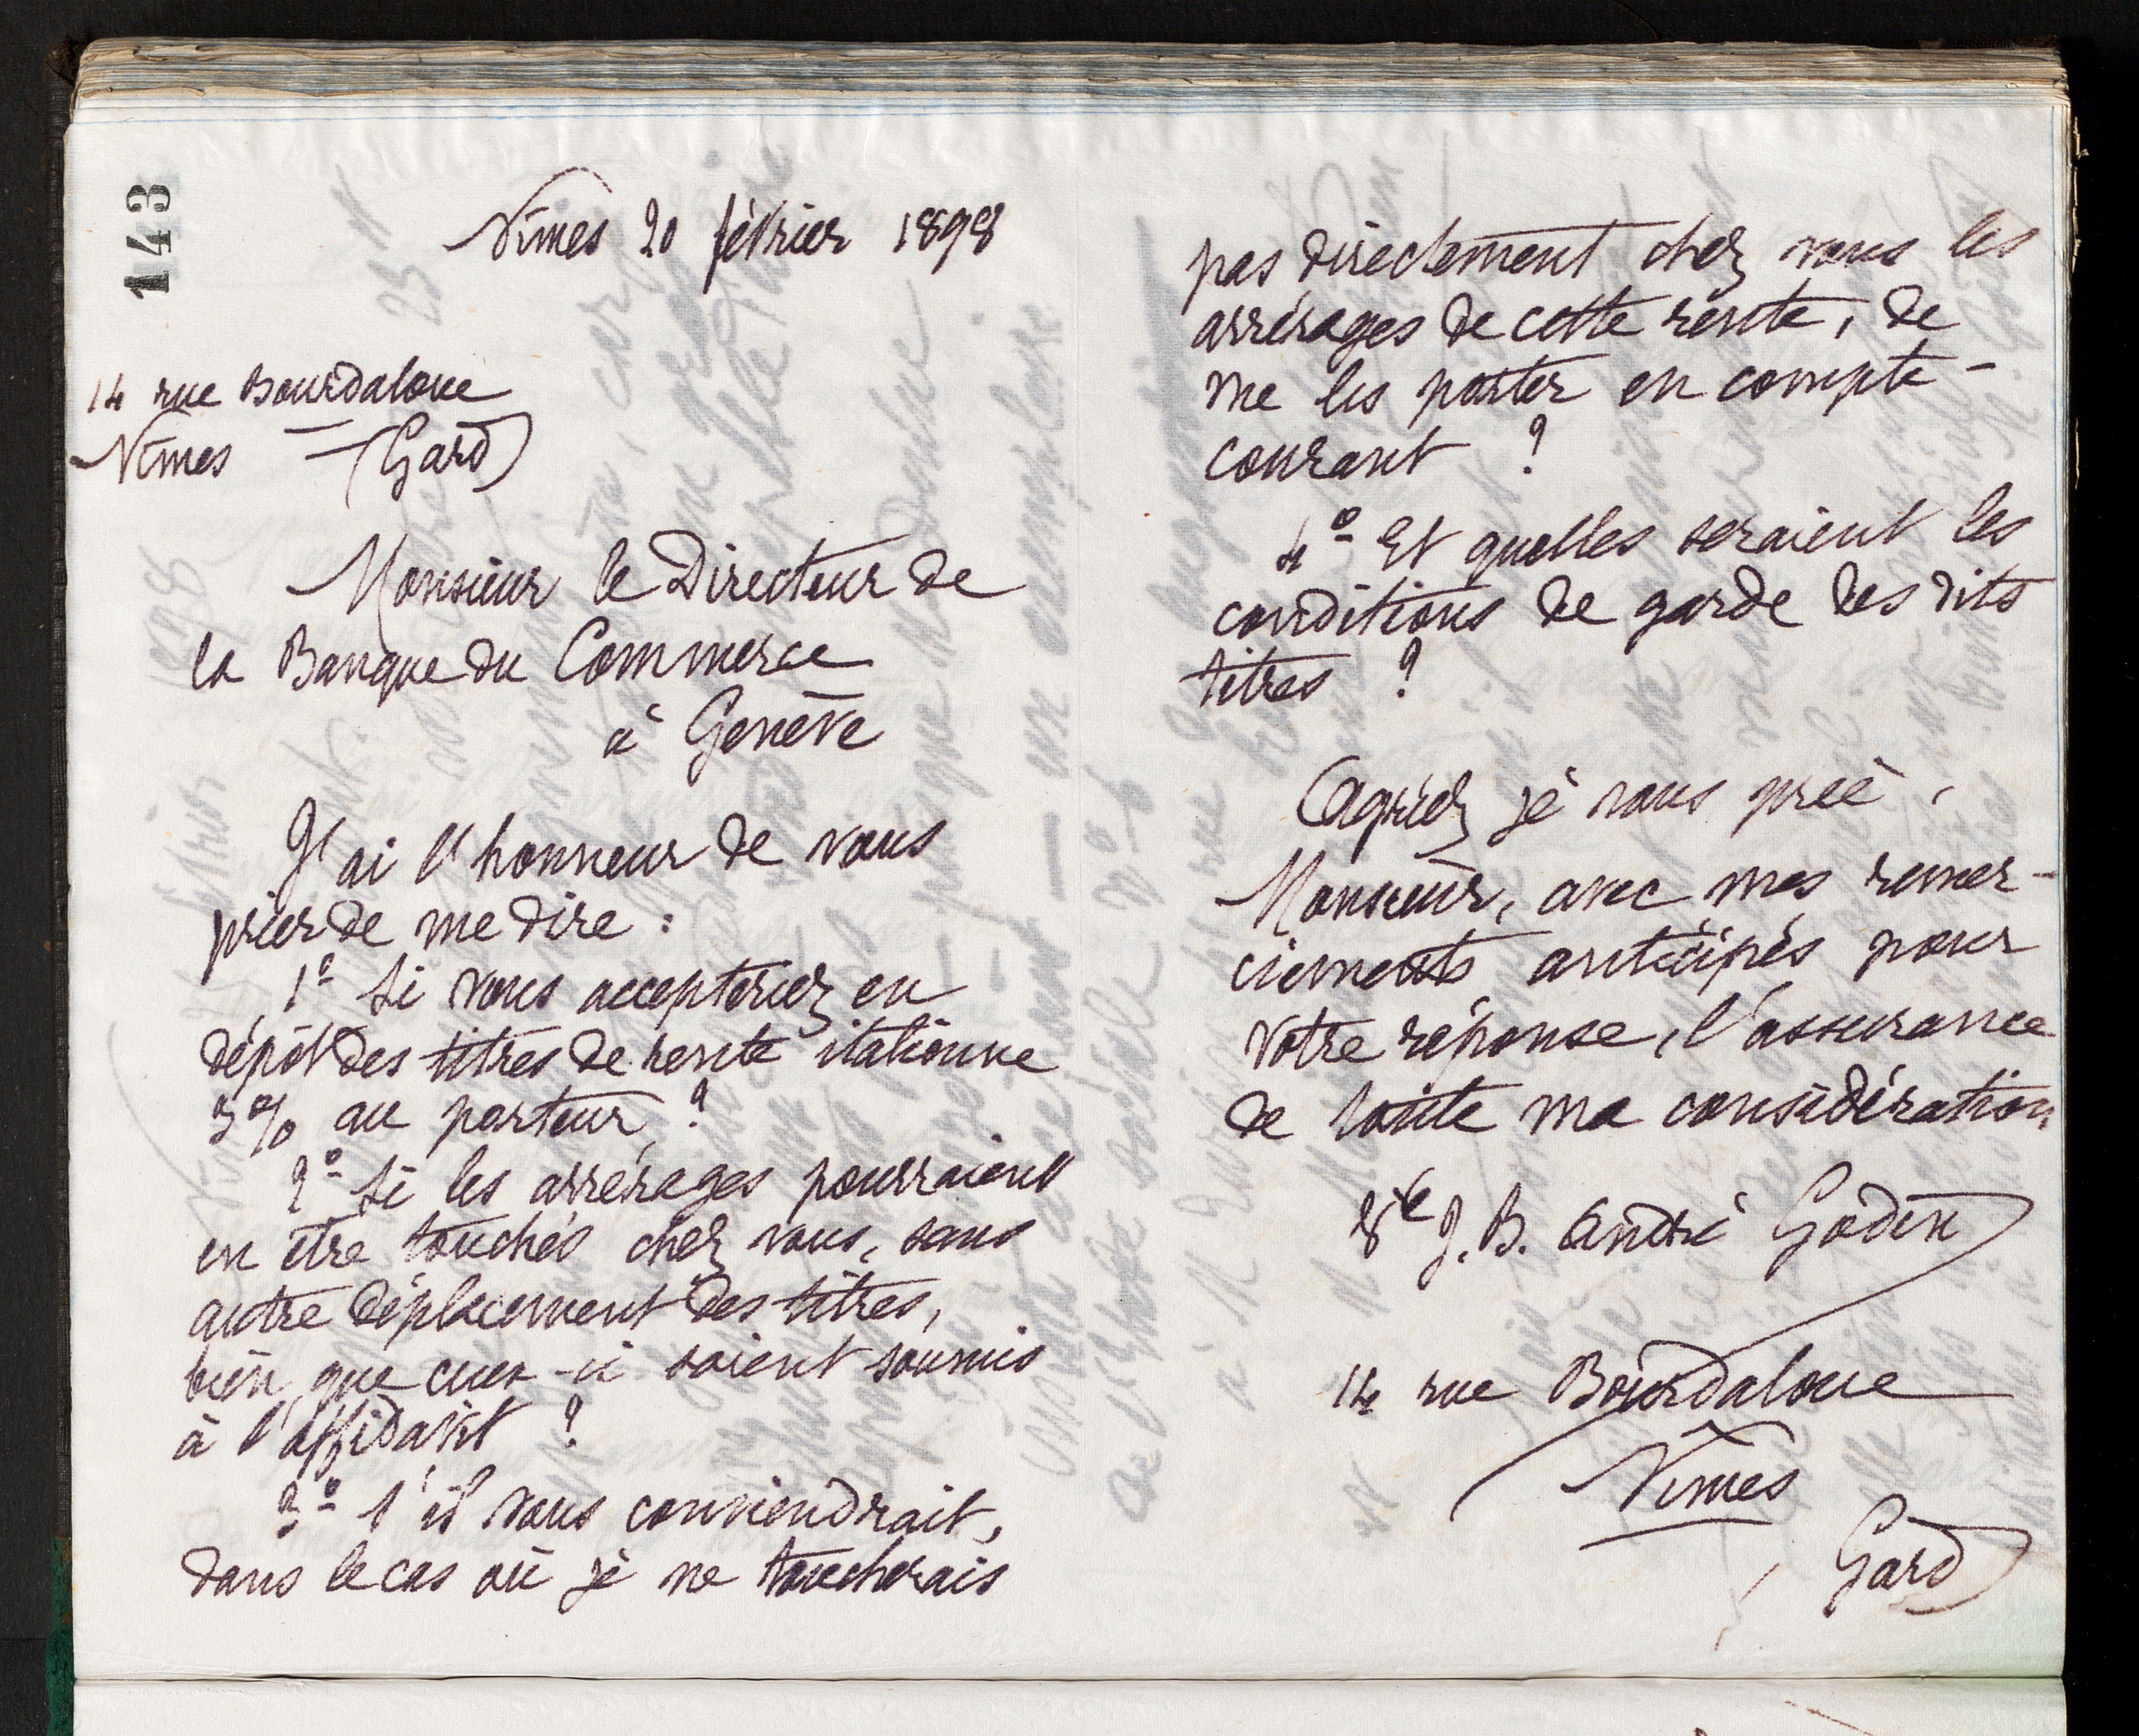 143
Nîmes 20 février 1898
14 rue Bourdaloue
Nîmes — (Gard)
Monsieur le Directeur de
la Banque du Commerce
à Genève
J'ai l'honneur de vous
prier de me dire :
1º Si vous accepteriez en
dépôt des titres de rente italienne
5% au porteur ?
2º Si les arrérages pourraient
en être touchés chez vous, sans
autre déplacement des titres,
bien que ceux-ci soient soumis
à l'affidavit ?
3º S'il vous conviendrait,
dans le cas où je ne toucherais
pas directement chez vous les
arrérages de cette rente, de
me les porter en compte-
courant ?
4º Et quelles seraient les
conditions de garde des dits
titres ?
Agréez je vous prie,
Monsieur, avec mes remer-
ciements anticipés pour
votre réponse, l'assurance
de toute ma considération.
Vve J. B. André Godin
14 rue Bourdaloue
Nîmes
Gard